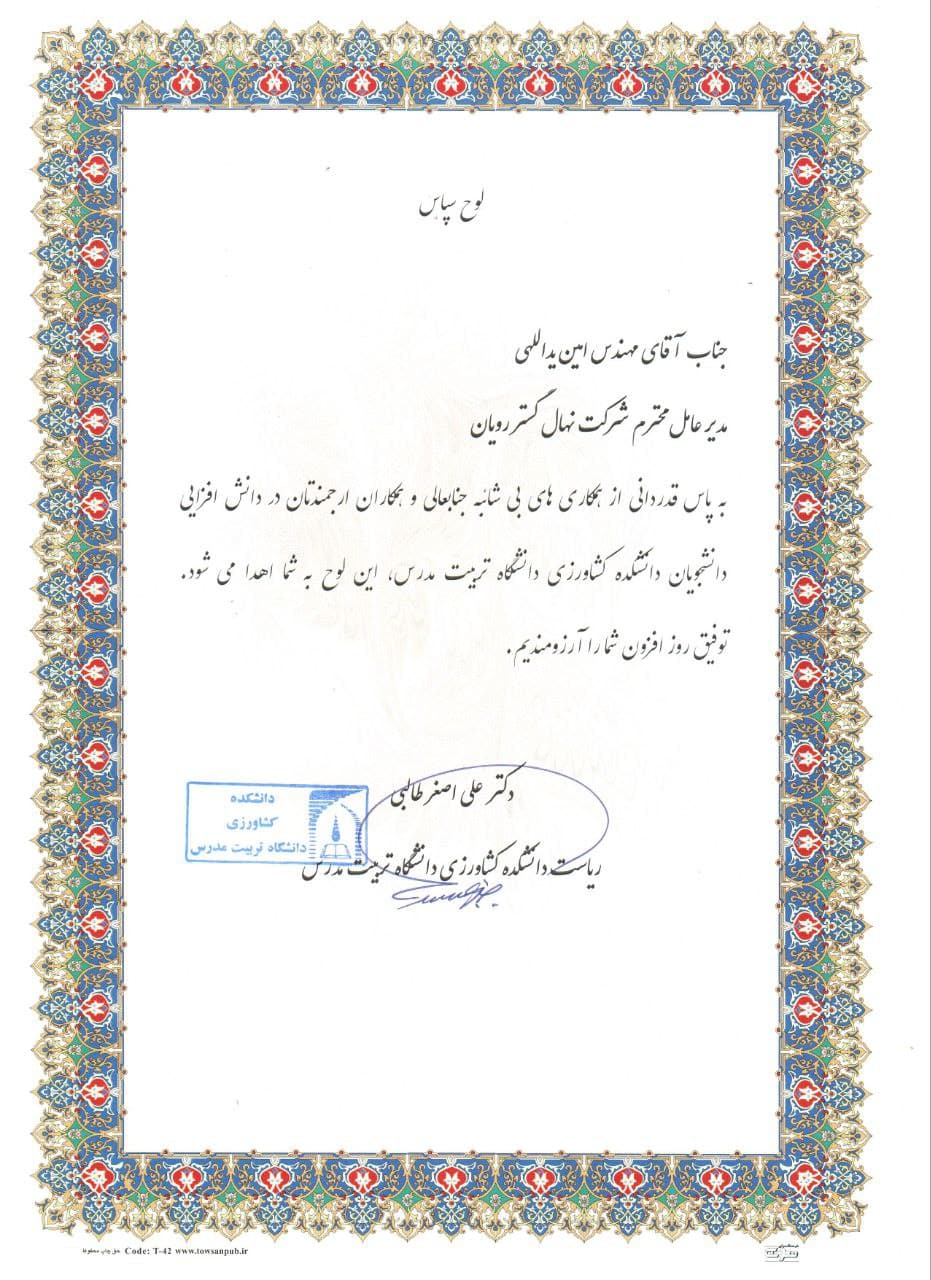 لوح سپاس
جناب آقای مهندس امین یداللهی
مدیر عامل محترم شرکت نهال گستر رویان
به پاس قدردانی از همکاری های بی شائبه جنابعالی و همکاران ارجمندتان در دانش افزایی
دانشجویان دانشکده کشاورزی دانشگاه تربیت مدرس، این لوح به شما اهدا می شود.
توفیق روز افزون شما را آرزومندیم.
دکتر علی اصغر طالبی
ریاست دانشکده کشاورزی دانشگاه تربیت مدرس
دانشکده
کشاورزی
دانشگاه تربیت مدرس
حق چاپ محفوظ Code: T-42 www.towsanpub.ir